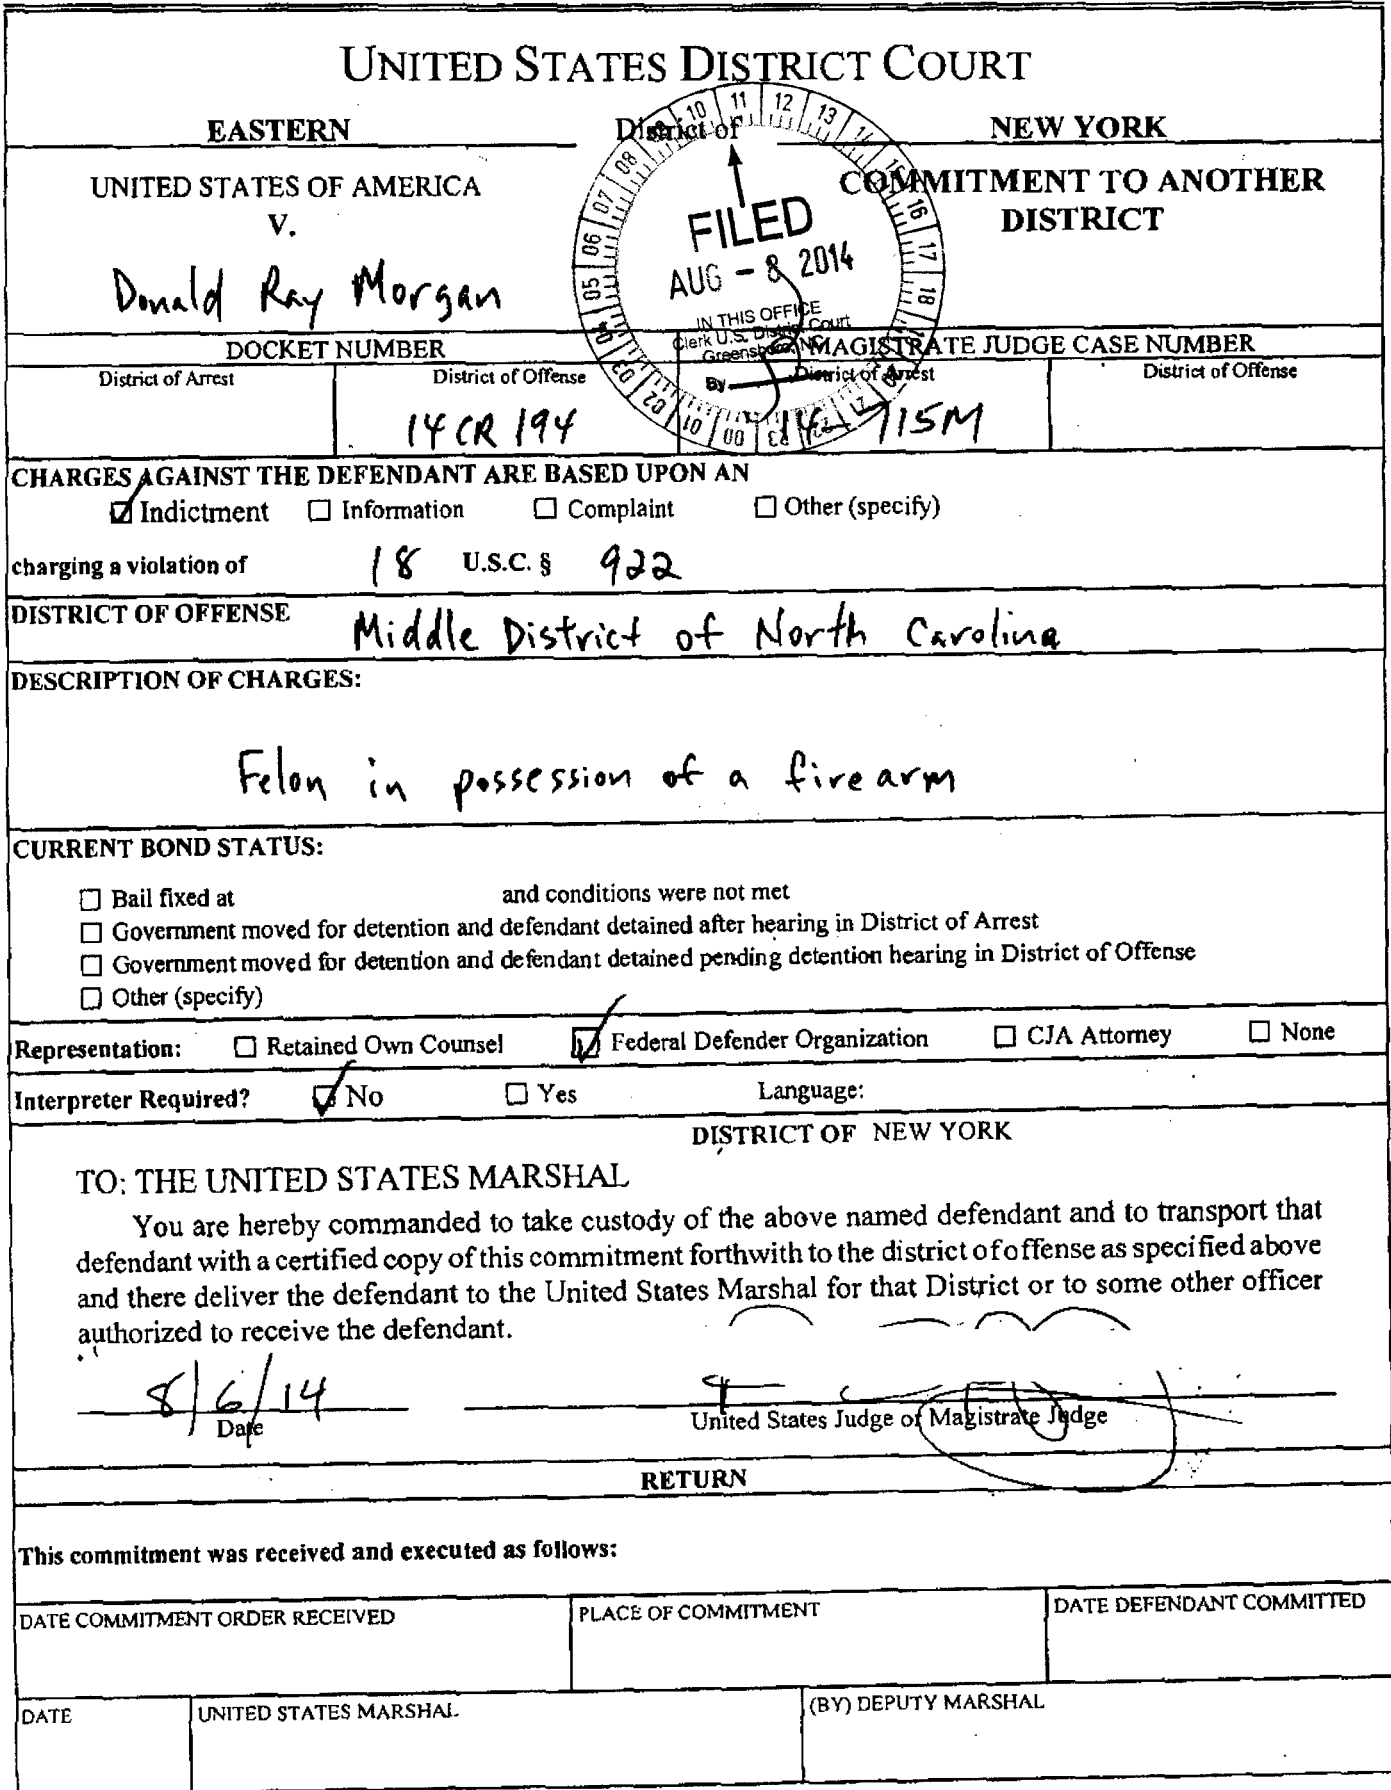 UNITED STATES DISTRICT COURT
EASTERN District of NEW YORK
UNITED STATES OF AMERICA
V.
Donald Ray Morgan
COMMITMENT TO ANOTHER
DISTRICT
10 11 12 13 14 15 16 17 18 21 23 00 01 02 03 04 05 06 07 08 09
FILED
AUG - 8 2014
IN THIS OFFICE
Clerk U.S. District Court
Greensboro, NC
By
DOCKET NUMBER
MAGISTRATE JUDGE CASE NUMBER
District of Arrest
District of Offense
District of Arrest
District of Offense
14 CR 194
14-715M
CHARGES AGAINST THE DEFENDANT ARE BASED UPON AN
☑ Indictment ☐ Information ☐ Complaint ☐ Other (specify)
charging a violation of 18 U.S.C. § 922
DISTRICT OF OFFENSE
Middle District of North Carolina
DESCRIPTION OF CHARGES:
Felon in possession of a firearm
CURRENT BOND STATUS:
☐ Bail fixed at and conditions were not met
☐ Government moved for detention and defendant detained after hearing in District of Arrest
☐ Government moved for detention and defendant detained pending detention hearing in District of Offense
☐ Other (specify)
Representation: ☐ Retained Own Counsel ☑ Federal Defender Organization ☐ CJA Attorney ☐ None
Interpreter Required? ☑ No ☐ Yes Language:
DISTRICT OF NEW YORK
TO: THE UNITED STATES MARSHAL
You are hereby commanded to take custody of the above named defendant and to transport that
defendant with a certified copy of this commitment forthwith to the district of offense as specified above
and there deliver the defendant to the United States Marshal for that District or to some other officer
authorized to receive the defendant.
8/6/14
Date
United States Judge or Magistrate Judge
RETURN
This commitment was received and executed as follows:
DATE COMMITMENT ORDER RECEIVED
PLACE OF COMMITMENT
DATE DEFENDANT COMMITTED
DATE
UNITED STATES MARSHAL
(BY) DEPUTY MARSHAL